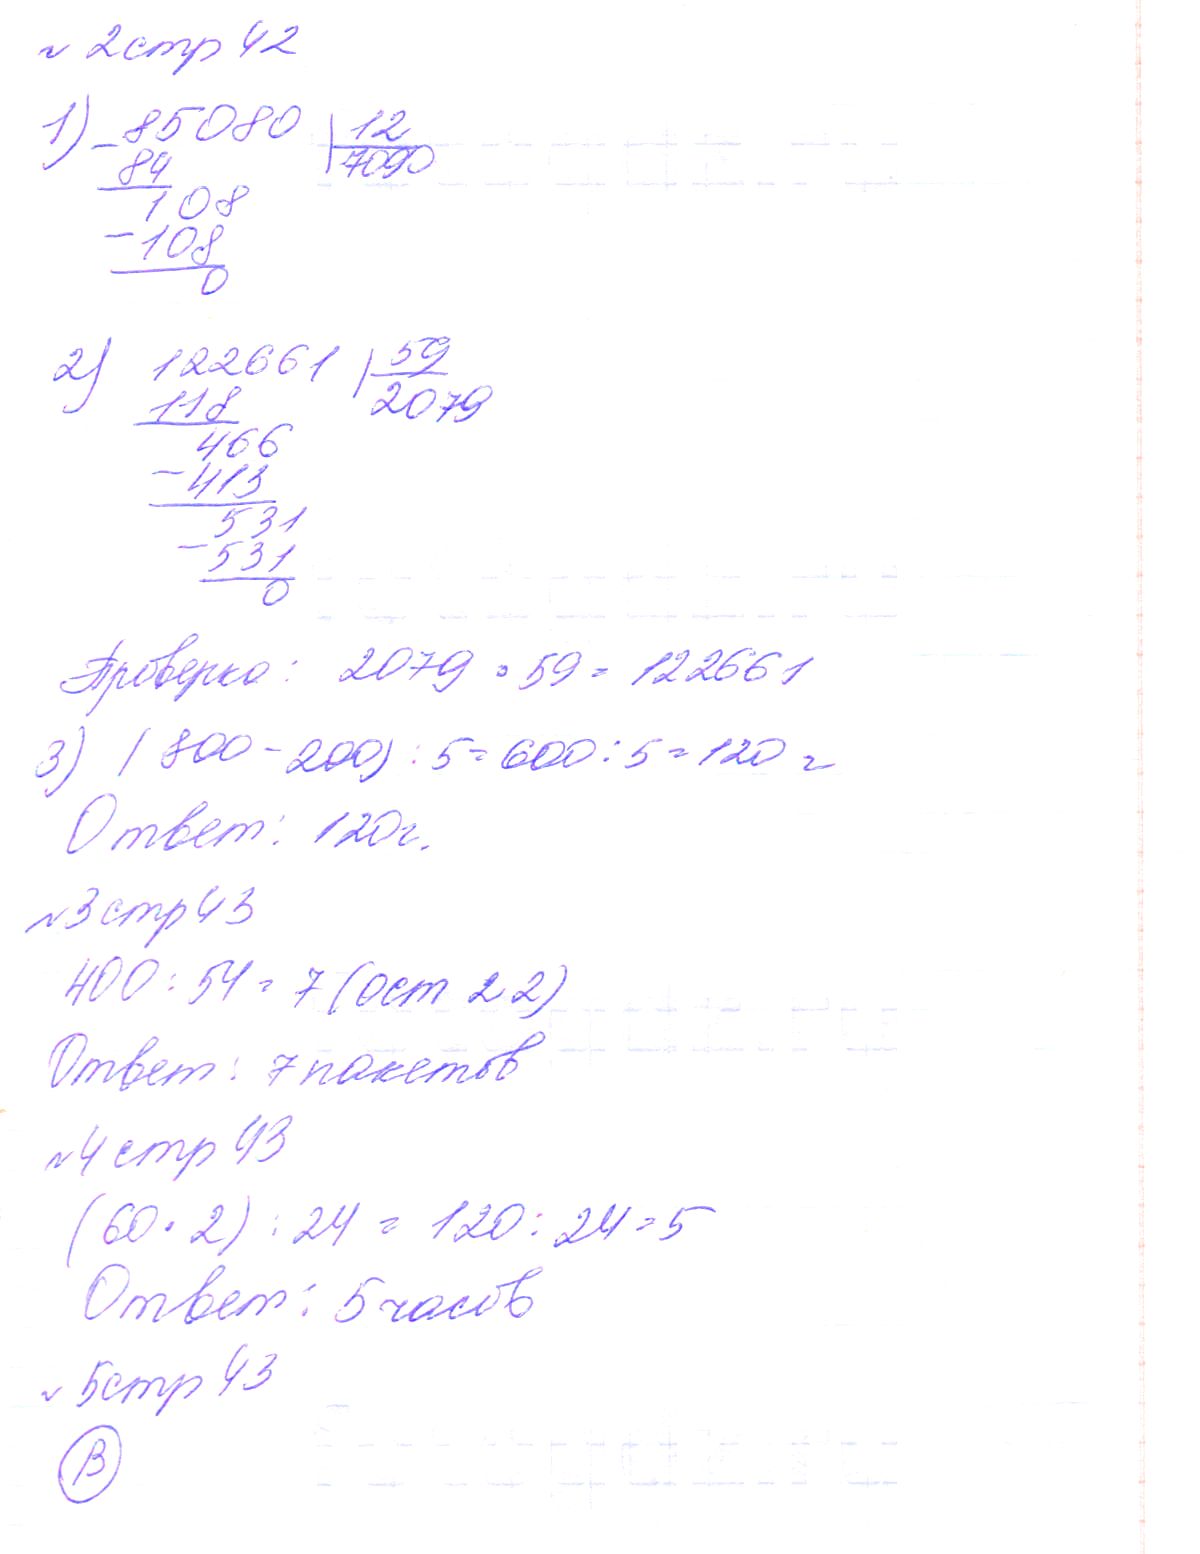 № 2 стр 42
1) 85080 | 12
- 84 7090
108
- 108
0
2) 122661 | 59
118 2079
466
- 413
531
- 531
0
Проверка: 2079 · 59 = 122661
3) (800 - 200) : 5 = 600 : 5 = 120 г
Ответ: 120 г.
№ 3 стр 43
400 : 54 = 7 (ост 22)
Ответ: 7 пакетов
№ 4 стр 43
(60 · 2) : 24 = 120 : 24 = 5
Ответ: 5 часов
№ 5 стр 43
В